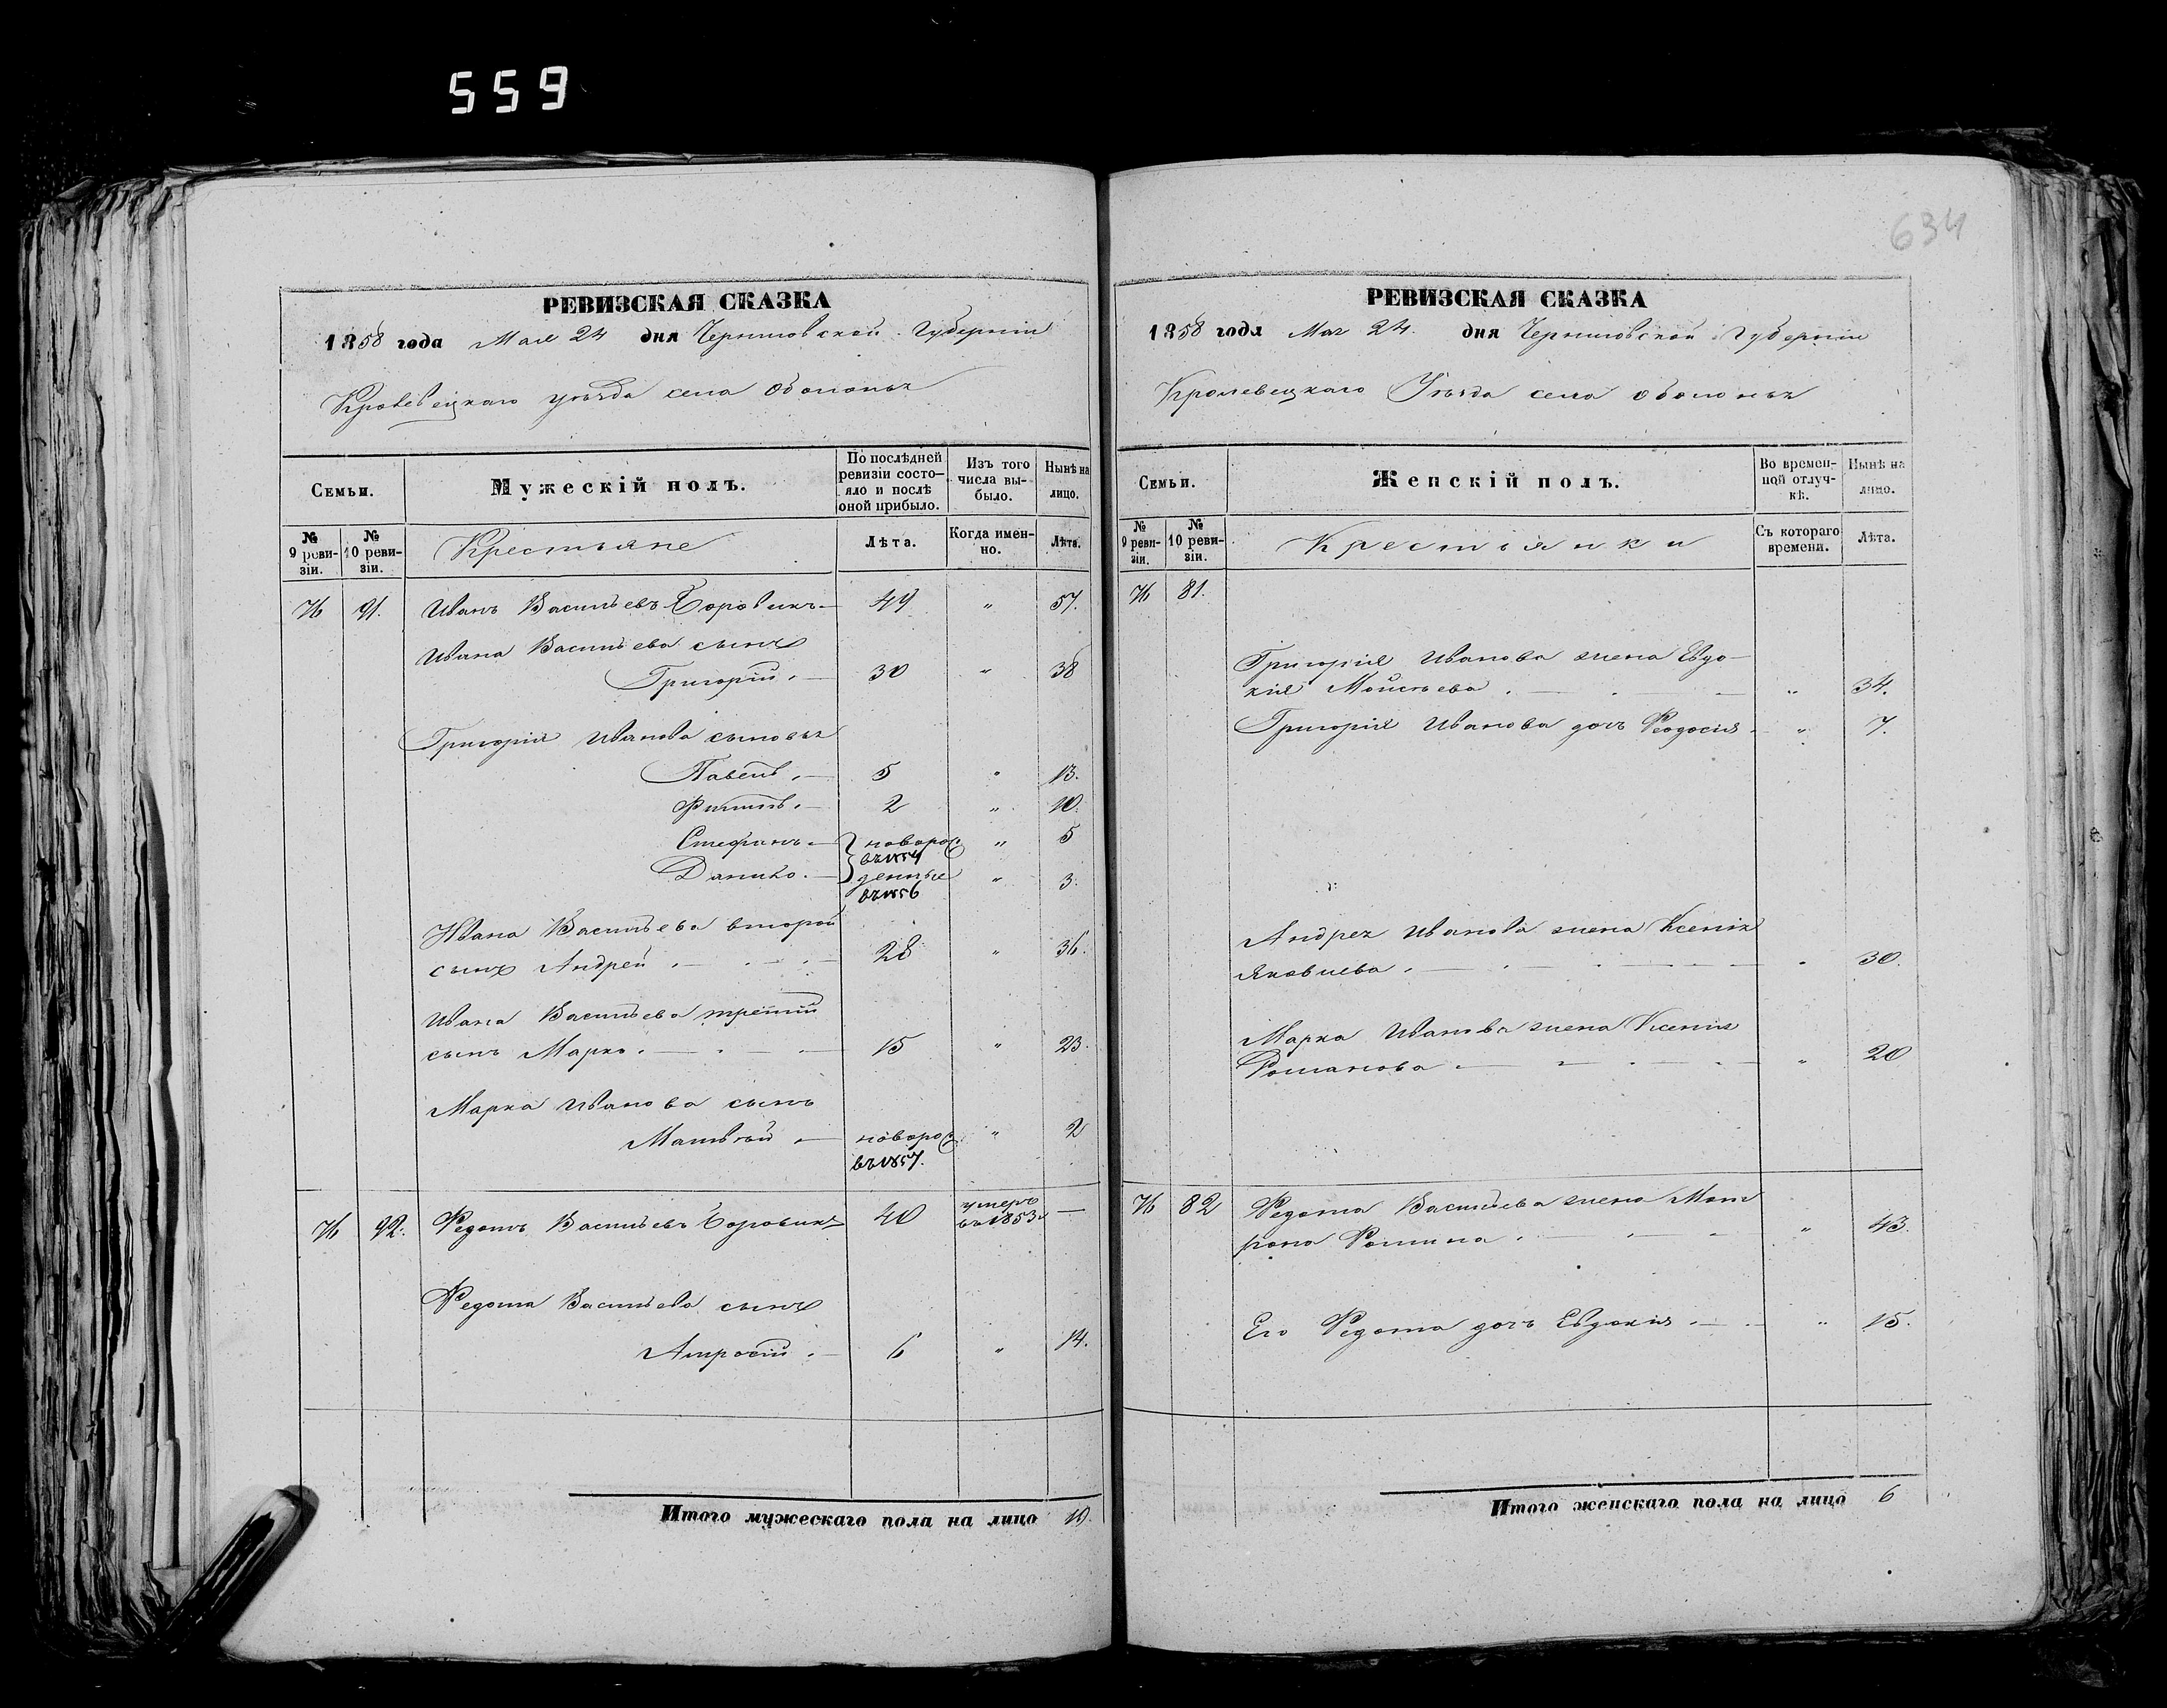 559
634
РЕВИЗСКАЯ СКАЗКА
1858 года Мая 24 дня Черниговской Губернии
Кролевецкаго уѣзда села Оболонья
Семьи.
Мужескій полъ.
По послѣдней ревизіи состояло и послѣ оной прибыло.
Изъ того числа выбыло.
Нынѣ на лицо.
№ 9 ревизіи.
№ 10 ревизіи.
Крестьяне
Лѣта.
Когда именно.
Лѣта.
76 91. Иванъ Васильевъ Боровикъ 49 " 57.
Ивана Васильева сынъ
Григорій. 30 " 38
Григорія Иванова сыновья
Павелъ. 5 " 13.
Филипъ. 2 " 10.
Стефанъ. новорож " 5
въ 1854
Данило. денные " 3.
въ 1856
Ивана Васильева второй
сынъ Андрей 28 " 36.
Ивана Васильева третій
сынъ Марко. 15 " 23.
Марка Иванова сынъ
Матвѣй новорож " 2
въ 1857.
76 92. Федотъ Васильевъ Боровикъ 40 умеръ въ 1853 —
Федота Васильева сынъ
Амросій. 6 " 14.
Итого мужескаго пола на лицо 10.
РЕВИЗСКАЯ СКАЗКА
1858 года Мая 24. дня Черниговской Губерніи
Кролевецкаго Уѣзда села Оболонья
Семьи.
Женскій полъ.
Во временной отлучкѣ.
Нынѣ на лицо.
№ 9 ревизіи.
№ 10 ревизіи.
Крестьянки
Съ котораго времени.
Лѣта.
76 81.
Григорія Иванова жена Евдо-
кія Моисѣева. " 34.
Григорія Иванова дочь Феодосія " 7.
Андрея Иванова жена Ксенія
Яковлева. " 30.
Марка Иванова жена Ксенія
Романова " 20
76 82 Федота Васильева жена Мат
рона Фомина. " 43.
Его Федота дочь Евдокія " 15.
Итого женскаго пола на лицо 6